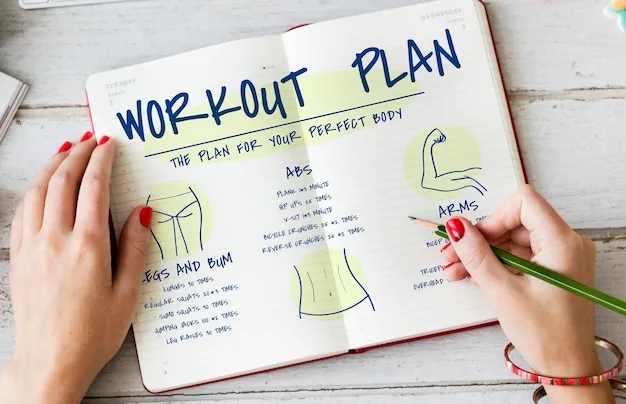 TUESDAY
August
2
WEDNESDAY
August
3
WORKOUT PLAN
THE PLAN FOR YOUR PERFECT BODY
LEGS AND BUM
LUNGES 30 TIMES
REGULAR SQUATS 20*3 TIMES
SUMO SQUATS 30 TIMES
JUMPING JACKS 100*2 TIMES
LEG RAISES 30 TIMES
ABS
PLANK 1*3 MINUTE
UP UPS 20 TIMES
V-SIT 1*3 MINUTE
BICYCLE CRUNCHES 20*2 TIMES
REVERSE CRUNCHES 20*2 TIMES
ARMS
BICEP
TRICEP
OVERHEAD